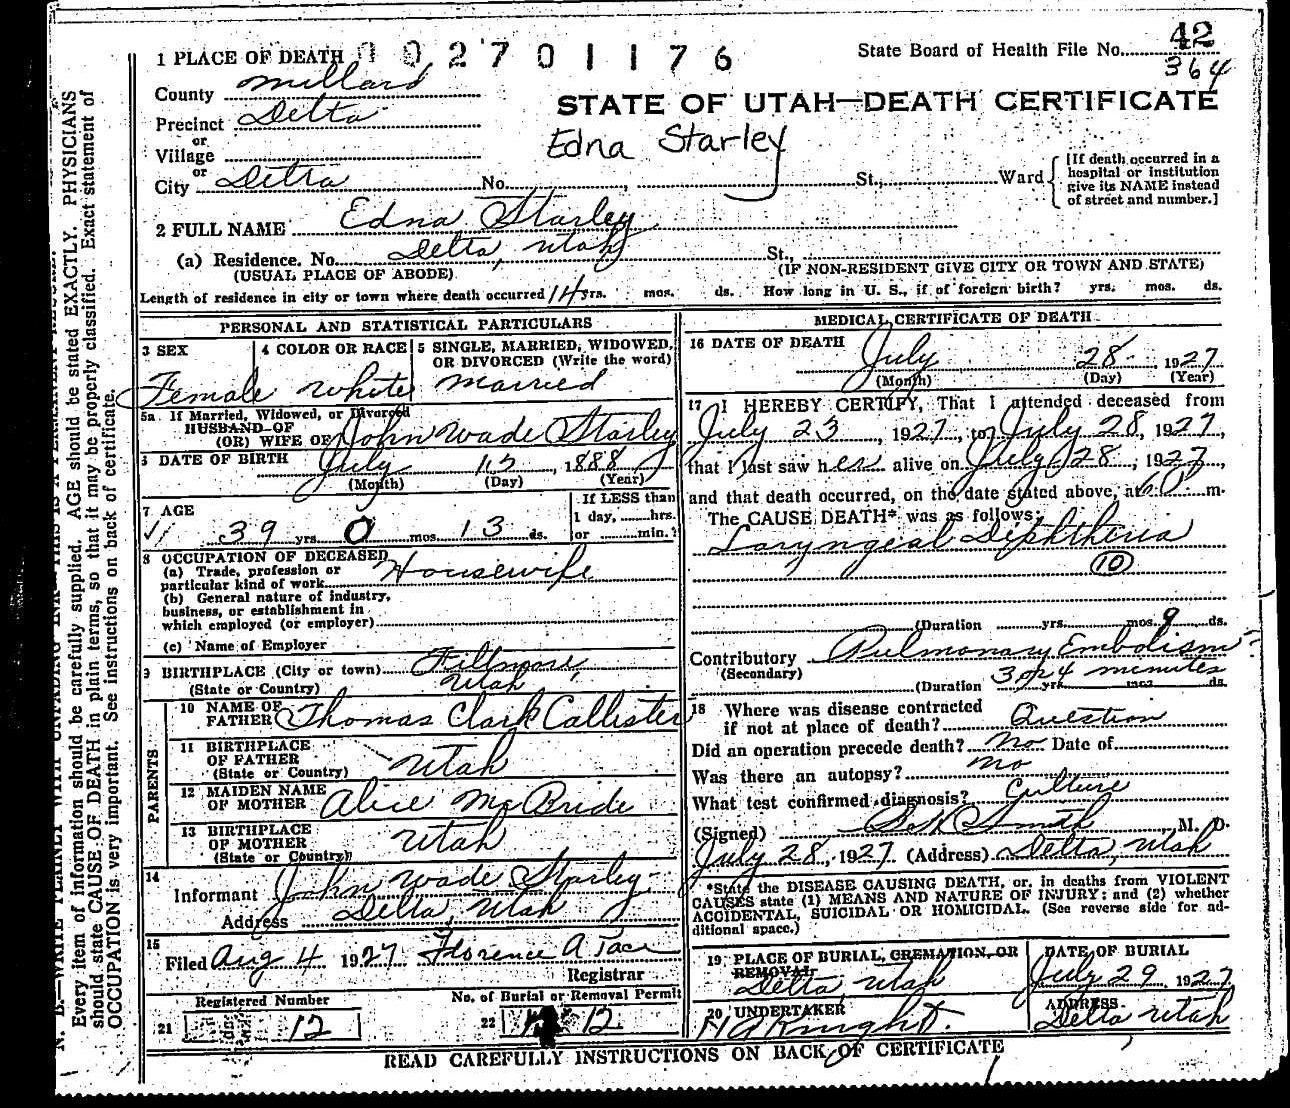 1 PLACE OF DEATH 002701176
State Board of Health File No. 42
364
County Millard
STATE OF UTAH—DEATH CERTIFICATE
Precinct Delta
Edna Starley
or
Village
or
City Delta No. St., Ward
[If death occurred in a
hospital or institution
give its NAME instead
of street and number.]
2 FULL NAME Edna Starley
(a) Residence. No. Delta, Utah St.,
(USUAL PLACE OF ABODE) (IF NON-RESIDENT GIVE CITY OR TOWN AND STATE)
Length of residence in city or town where death occurred 14 yrs. mos. ds. How long in U. S., if of foreign birth? yrs. mos. ds.
PERSONAL AND STATISTICAL PARTICULARS
3 SEX 4 COLOR OR RACE 5 SINGLE, MARRIED, WIDOWED,
OR DIVORCED (Write the word)
Female White Married
5a If Married, Widowed, or Divorced
HUSBAND OF
(OR) WIFE OF John Wade Starley
6 DATE OF BIRTH July 15, 1888
(Month) (Day) (Year)
7 AGE
39 yrs. 0 mos. 13 ds.
If LESS than
1 day, hrs.
or min.?
8 OCCUPATION OF DECEASED
(a) Trade, profession or
particular kind of work Housewife
(b) General nature of industry,
business, or establishment in
which employed (or employer)
(c) Name of Employer
9 BIRTHPLACE (City or town) Fillmore,
(State or Country) Utah
PARENTS
10 NAME OF
FATHER Thomas Clark Callister
11 BIRTHPLACE
OF FATHER Utah
(State or Country)
12 MAIDEN NAME
OF MOTHER Alice McBride
13 BIRTHPLACE
OF MOTHER Utah
(State or Country)
14
Informant John Wade Starley
Address Delta, Utah
15
Filed Aug 4 1927 Florence A
Registrar
Registered Number No. of Burial or Removal Permit
21 12 22 12
MEDICAL CERTIFICATE OF DEATH
16 DATE OF DEATH July 28 1927
(Month) (Day) (Year)
17 I HEREBY CERTIFY, That I attended deceased from
July 23, 1927, to July 28, 1927,
that I last saw her alive on July 28, 1927,
and that death occurred, on the date stated above, at m.
The CAUSE DEATH* was as follows:
Laryngeal Diphtheria
10
(Duration yrs. mos. 9 ds.
Contributory Pulmonary Embolism
(Secondary)
(Duration 3 or 4 minutes yrs. mos. ds.
18 Where was disease contracted
if not at place of death? Question
Did an operation precede death? no Date of
Was there an autopsy? no
What test confirmed diagnosis? Culture
(Signed) Smith, M. D.
July 28, 1927 (Address) Delta, Utah
*State the DISEASE CAUSING DEATH, or, in deaths from VIOLENT
CAUSES state (1) MEANS AND NATURE OF INJURY; and (2) whether
ACCIDENTAL, SUICIDAL OR HOMICIDAL. (See reverse side for ad-
ditional space.)
19 PLACE OF BURIAL, CREMATION, OR
REMOVAL
Delta, Utah
DATE OF BURIAL
July 29, 1927
20 UNDERTAKER
H A Knight
ADDRESS
Delta Utah
READ CAREFULLY INSTRUCTIONS ON BACK OF CERTIFICATE
Every item of information should be carefully supplied. AGE should be stated EXACTLY. PHYSICIANS
should state CAUSE OF DEATH in plain terms, so that it may be properly classified. Exact statement of
OCCUPATION is very important. See instructions on back of certificate.